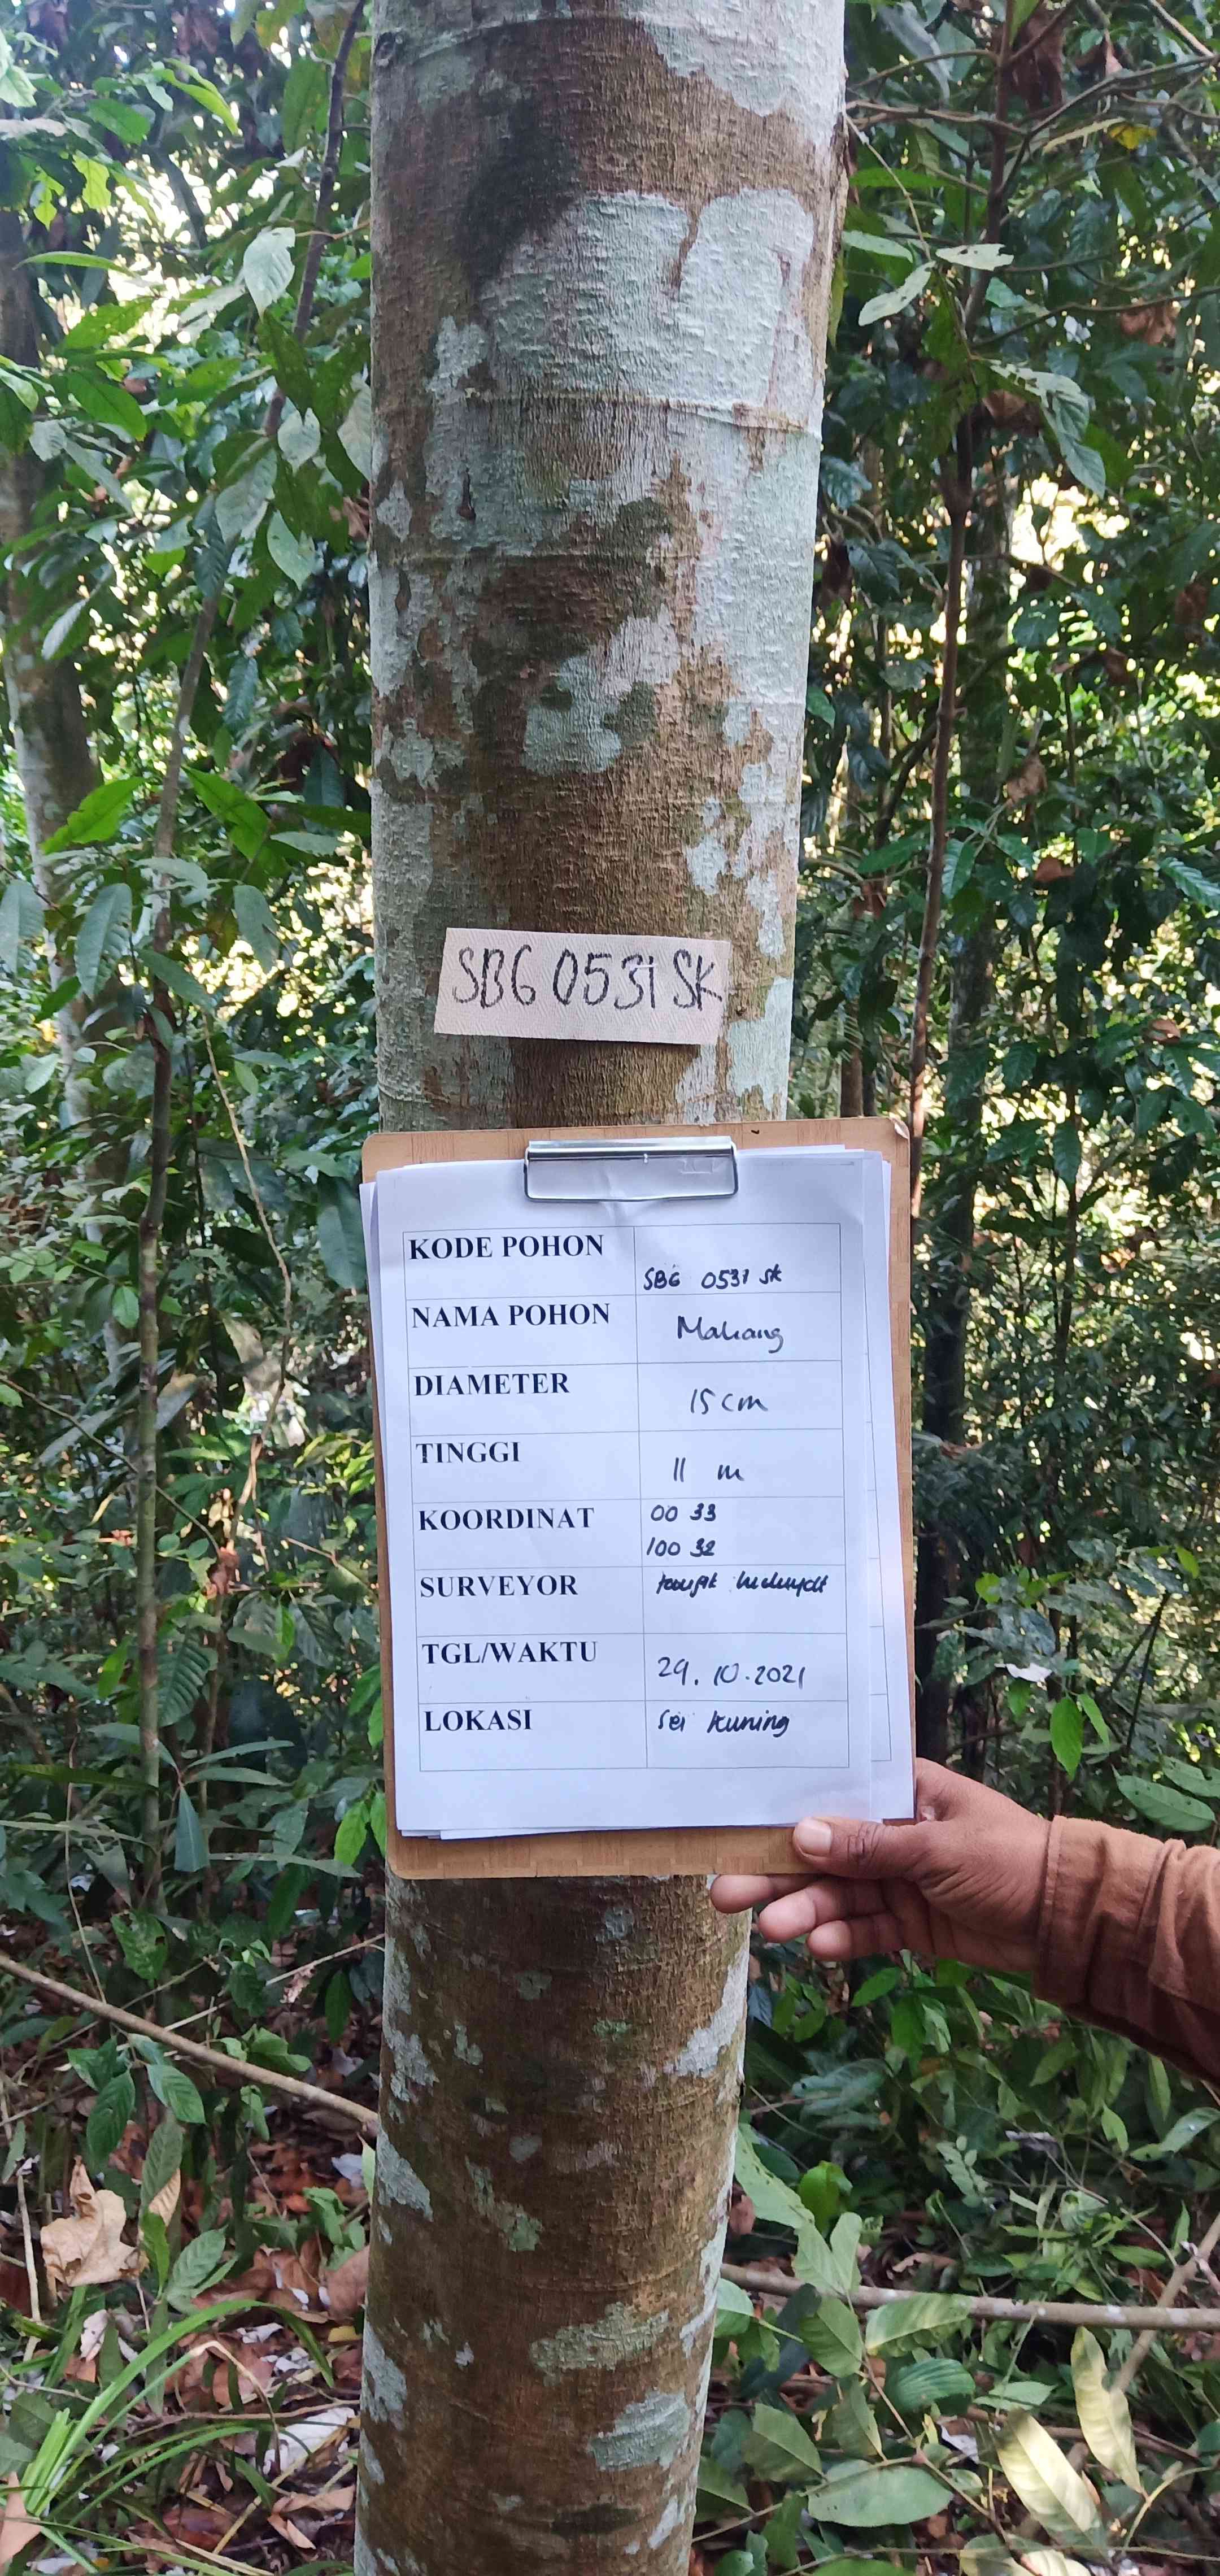 SBG 0531 SK
KODE POHON
SBG 0531 SK
NAMA POHON
Mahang
DIAMETER
15 cm
TINGGI
11 m
KOORDINAT
00 33
100 32
SURVEYOR
TGL/WAKTU
29.10.2021
LOKASI
Sei Kuning